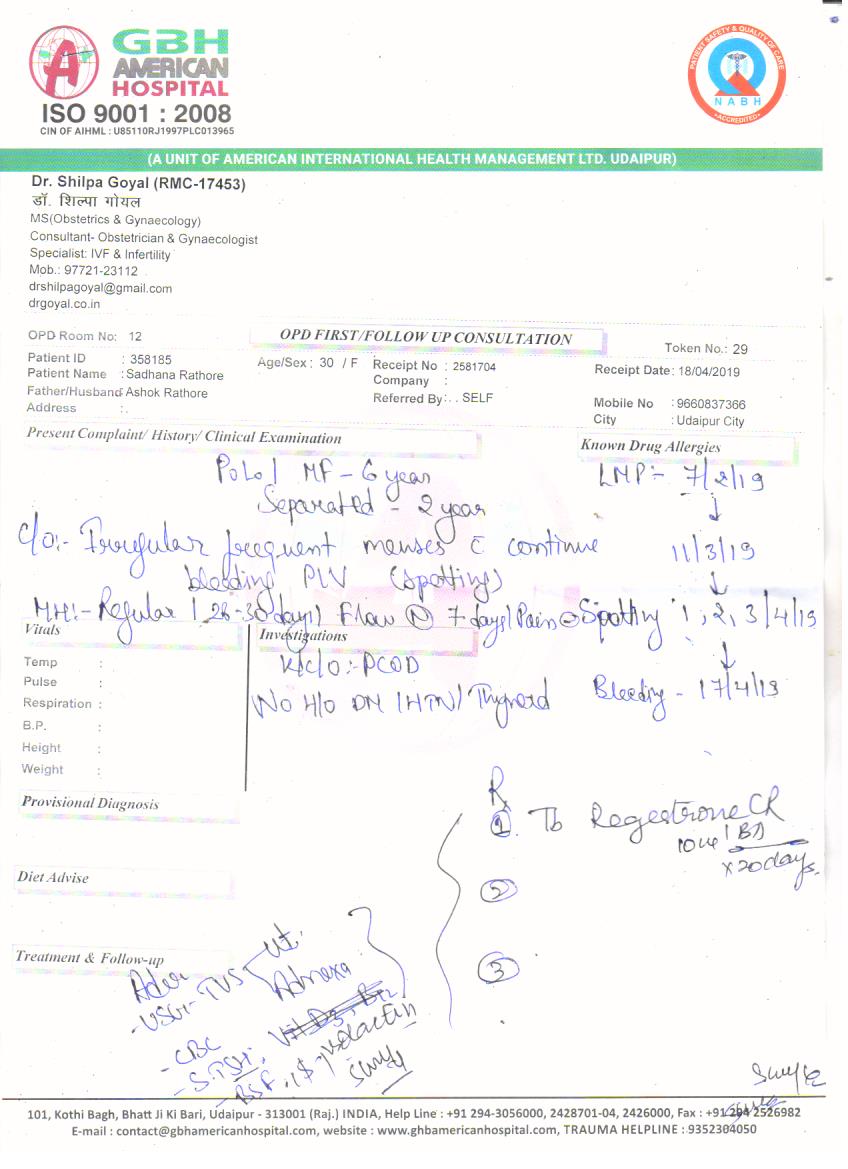 GBH
AMERICAN
HOSPITAL
ISO 9001 : 2008
CIN OF AIHML : U85110RJ1997PLC013965
PATIENT SAFETY & QUALITY OF CARE
NABH
ACCREDITED
(A UNIT OF AMERICAN INTERNATIONAL HEALTH MANAGEMENT LTD. UDAIPUR)
Dr. Shilpa Goyal (RMC-17453)
डॉ. शिल्पा गोयल
MS(Obstetrics & Gynaecology)
Consultant- Obstetrician & Gynaecologist
Specialist: IVF & Infertility
Mob.: 97721-23112
drshilpagoyal@gmail.com
drgoyal.co.in
OPD Room No: 12
OPD FIRST/FOLLOW UP CONSULTATION
Token No.: 29
Patient ID : 358185
Age/Sex : 30 / F
Receipt No : 2581704
Receipt Date: 18/04/2019
Patient Name : Sadhana Rathore
Company :
Father/Husband: Ashok Rathore
Referred By: . . SELF
Mobile No : 9660837366
Address : .
City : Udaipur City
Present Complaint/ History/ Clinical Examination
Known Drug Allergies
P0L0 | MF - 6 year
LMP:- 7/2/19
Separated - 2 year
↓
C/o:- Irregular frequent menses c continue
11/3/19
bleeding P/V (spotting)
↓
MH:- Regular | 28-30 days | Flow (N) 7 days | Pain
Spotting 1, 2, 3/4/19
↓
Vitals
Investigations
K/C/O:- PCOD
No H/o DM / HTN / Thyroid
Bleeding - 17/4/19
Temp :
Pulse :
Respiration :
B.P. :
Height :
Weight :
Provisional Diagnosis
Rx
① Tb Regestrone CR
10 BD
x 20 days.
②
③
Diet Advise
Treatment & Follow-up
- USG - TVS
Ut.
Adnexa
- CBC
- S. TSH,
Vit D3, B12
101, Kothi Bagh, Bhatt Ji Ki Bari, Udaipur - 313001 (Raj.) INDIA, Help Line : +91 294-3056000, 2428701-04, 2426000, Fax : +91 294 2526982
E-mail : contact@gbhamericanhospital.com, website : www.ghbamericanhospital.com, TRAUMA HELPLINE : 9352304050